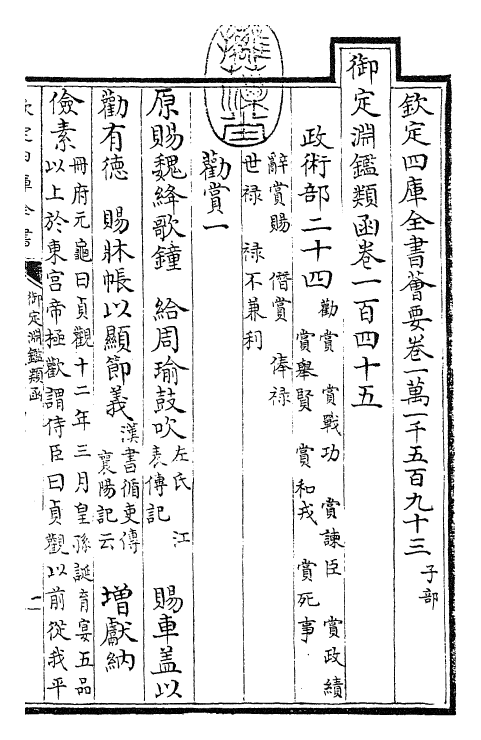 欽定四庫全書薈要卷一萬一千五百九十三 子部
御定淵鑑類函卷一百四十五
政術部二十四 勸賞 賞戰功 賞諫臣 賞政績
賞舉賢 賞和戎 賞死事
辭賞賜 僭賞 俸祿
世祿 祿不兼利
勸賞一
原賜魏絳歌鐘 給周瑜鼓吹 左氏 江
表傳記 賜車蓋以
勸有德 賜牀帳以顯節義 漢書循吏傳
襄陽記云 增獻納
儉素 冊府元龜曰貞觀十二年三月皇孫誕育宴五品
以上於東宮帝極歡謂侍臣曰貞觀以前從我平
欽定四庫全書
御定淵鑑類函